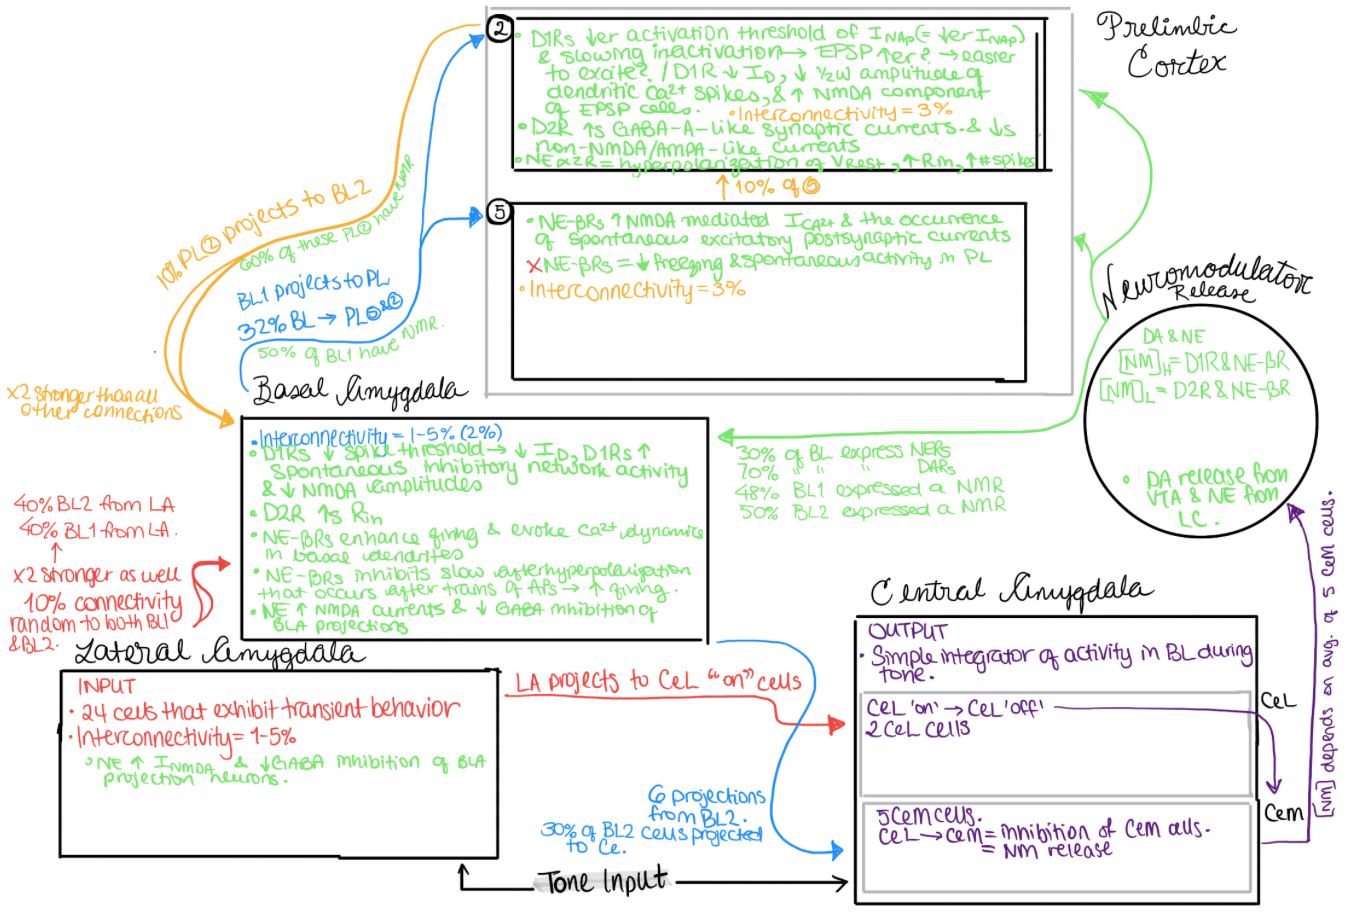 Prelimbic
Cortex
②
• D1Rs ↓er activation threshold of I NAP (= ↓er I NAP)
& slowing inactivation → EPSP ↑er? → easier
to excite? / D1R ↓ I D, ↓ ½w amplitude of
dendritic Ca²⁺ spikes, & ↑ NMDA component
of EPSP cells.
• Interconnectivity = 3%
• D2R ↑s GABA-A-like synaptic currents & ↓s
non-NMDA/AMPA-like currents
• NE α2R = hyperpolarization of Vrest, ↑ Rin, ↑ # spikes
↑ 10% of ⑤
⑤
• NE-βRs ↑ NMDA mediated I Ca²⁺ & the occurrence
of spontaneous excitatory postsynaptic currents
X NE-βRs = ↓ freezing & spontaneous activity in PL
• Interconnectivity = 3%
10% PL② projects to BL2
60% of these PL② have NMR
BL1 projects to PL
32% BL → PL⑤&②
50% of BL1 have NMR.
x2 stronger than all
other connections
Basal Amygdala
• Interconnectivity = 1-5% (2%)
• D1Rs ↓ spike threshold → ↓ I D, D1Rs ↑
spontaneous inhibitory network activity
& ↓ NMDA amplitudes
• D2R ↑s Rin
• NE-βRs enhance firing & evoke Ca²⁺ dynamics
in basal dendrites
• NE-βRs inhibits slow afterhyperpolarization
that occurs after trans of APs → ↑ firing.
• NE ↑ NMDA currents & ↓ GABA inhibition of
BLA projections
40% BL2 from LA
40% BL1 from LA.
↑
x2 stronger as well
10% connectivity
random to both BL1
& BL2.
Neuromodulator
Release
DA & NE
[NM]H = D1R & NE-βR
[NM]L = D2R & NE-βR
• DA release from
VTA & NE from
LC.
30% of BL express NERs
70% " " " DARs
48% BL1 expressed a NMR
50% BL2 expressed a NMR
Lateral Amygdala
INPUT
• 24 cells that exhibit transient behavior
• Interconnectivity = 1-5%
• NE ↑ I NMDA & ↓ GABA inhibition of BLA
projection neurons.
LA projects to CeL "on" cells
6 projections
from BL2.
30% of BL2 cells projected
to Ce.
Central Amygdala
OUTPUT
• Simple integrator of activity in BL during
tone.
CeL
CeL 'on' → CeL 'off'
2 CeL cells
Cem
5 Cem cells.
CeL → Cem = inhibition of Cem cells.
= NM release
[NM] depends on avg. of 5 Cem cells.
Tone Input